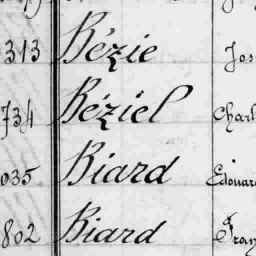 313 Bézie Jos
734 Béziel Charl
035 Biard Edouar
802 Biard Fran